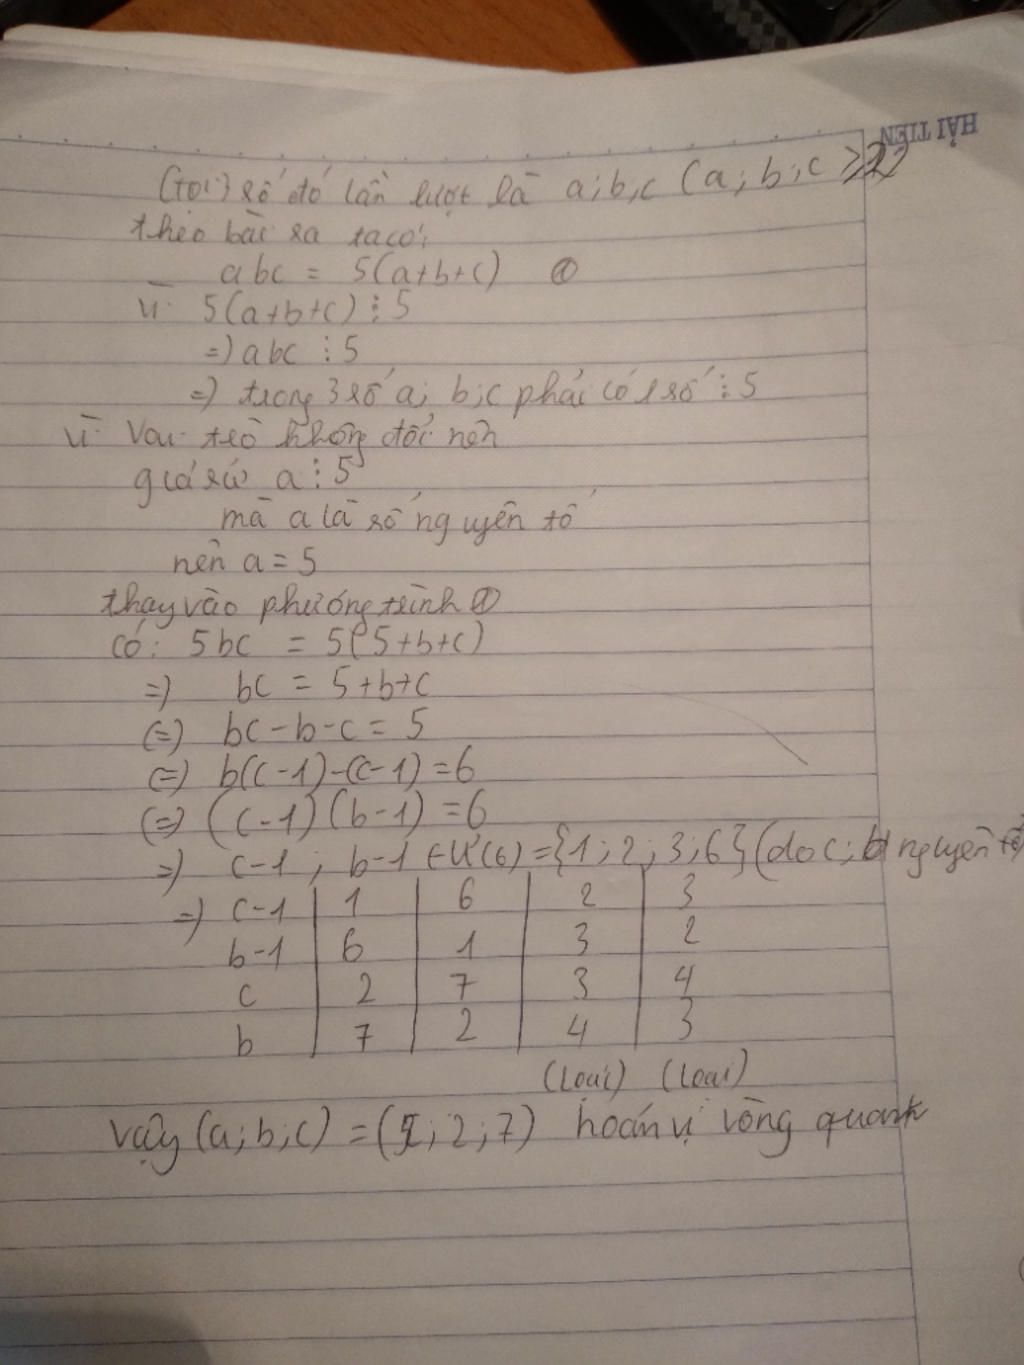 HẢI TIẾN
(tọi) số đó lần lượt là a;b;c (a;b;c ≥2)
theo bài ra ta có:
abc = 5(a+b+c) ①
vì 5(a+b+c) ⋮ 5
=) abc ⋮ 5
=) trong 3 số a; b;c phải có 1 số ⋮ 5
vì vai trò không đổi nên
giả sử a ⋮ 5
mà a là số nguyên tố
nên a = 5
thay vào phương trình ①
có: 5bc = 5(5+b+c)
=) bc = 5+b+c
(=) bc-b-c = 5
(=) b(c-1)-(c-1) = 6
(=) (c-1)(b-1) = 6
=) c-1 ; b-1 ∈ Ư(6) = {1;2;3;6} (do c;b nguyên tố)
=) c-1 | 1 | 6 | 2 | 3
b-1 | 6 | 1 | 3 | 2
c | 2 | 7 | 3 | 4
b | 7 | 2 | 4 | 3
(loại) (loại)
vậy (a;b;c) = (5;2;7) hoán vị vòng quanh